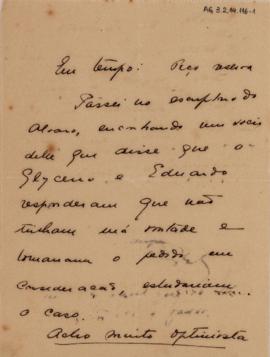 AG 3.2.14.116-1
Em tempo: Peço
Passei no escriptorio do
Alvaro, encontrando um socio
delle que disse que o
Glycerio e Eduardo
responderam que não
tinham má vontade e
tomariam o pedido em
consideração, estudariam
o caso.
Acho muito optimista